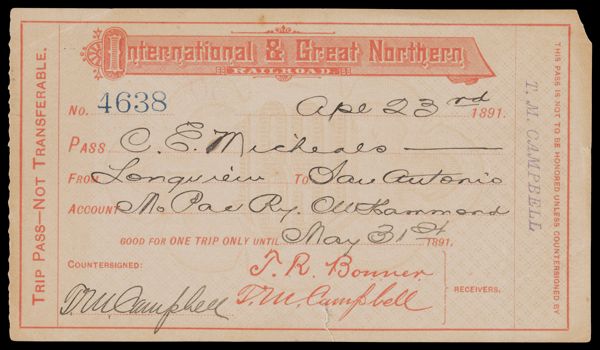 International & Great Northern
RAILROAD.
No. 4638 Apl 23rd 1891.
PASS C. E. Micheals
FROM Longview TO San Antonio
ACCOUNT Mo Pac Ry. Hammond
GOOD FOR ONE TRIP ONLY UNTIL May 31st 1891.
COUNTERSIGNED:
T. M. Campbell
T. R. Bonner
T. M. Campbell
RECEIVERS.
TRIP PASS—NOT TRANSFERABLE.
T. M. CAMPBELL
THIS PASS IS NOT TO BE HONORED UNLESS COUNTERSIGNED BY